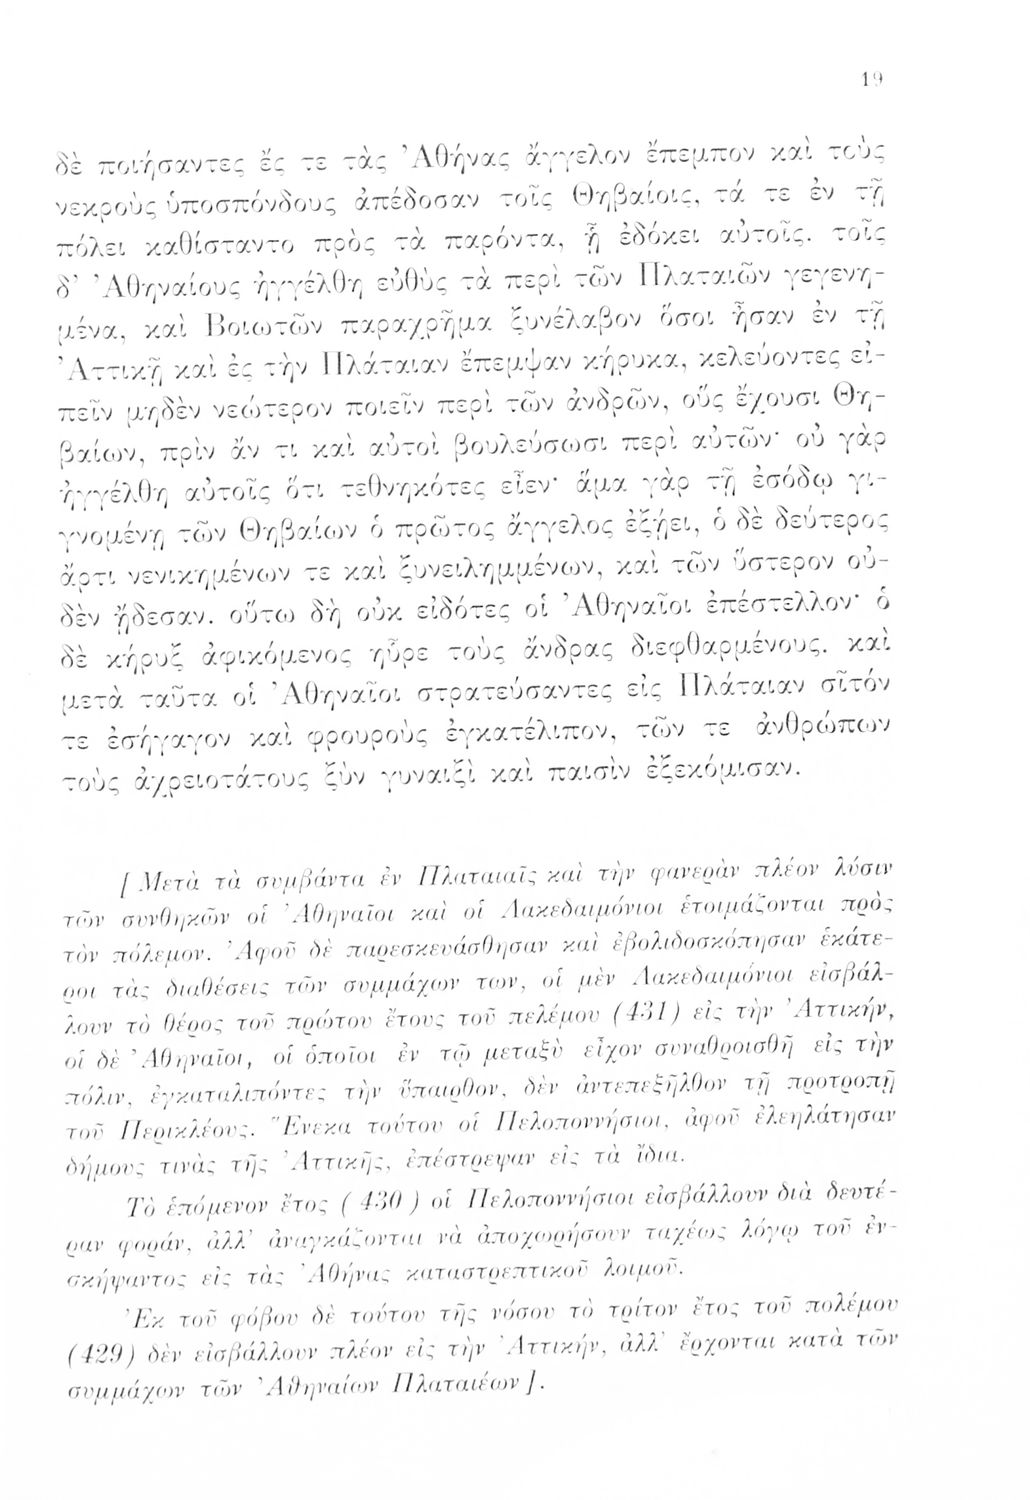 19
δὲ ποιήσαντες ἔς τε τὰς Ἀθήνας ἄγγελον ἔπεμπον καὶ τοὺς
νεκροὺς ὑποσπόνδους ἀπέδοσαν τοῖς Θηβαίοις, τά τε ἐν τῇ
πόλει καθίσταντο πρὸς τὰ παρόντα, ᾗ ἐδόκει αὐτοῖς. τοῖς
δ’ Ἀθηναίους ἠγγέλθη εὐθὺς τὰ περὶ τῶν Πλαταιῶν γεγενη-
μένα, καὶ Βοιωτῶν παραχρῆμα ξυνέλαβον ὅσοι ἦσαν ἐν τῇ
Ἀττικῇ καὶ ἐς τὴν Πλάταιαν ἔπεμψαν κήρυκα, κελεύοντες εἰ-
πεῖν μηδὲν νεώτερον ποιεῖν περὶ τῶν ἀνδρῶν, οὓς ἔχουσι Θη-
βαίων, πρὶν ἄν τι καὶ αὐτοὶ βουλεύσωσι περὶ αὐτῶν· οὐ γὰρ
ἠγγέλθη αὐτοῖς ὅτι τεθνηκότες εἶεν· ἅμα γὰρ τῇ ἐσόδῳ γι-
γνομένῃ τῶν Θηβαίων ὁ πρῶτος ἄγγελος ἐξῄει, ὁ δὲ δεύτερος
ἄρτι νενικημένων τε καὶ ξυνειλημμένων, καὶ τῶν ὕστερον οὐ-
δὲν ᾔδεσαν. οὕτω δὴ οὐκ εἰδότες οἱ Ἀθηναῖοι ἐπέστελλον· ὁ
δὲ κήρυξ ἀφικόμενος ηὗρε τοὺς ἄνδρας διεφθαρμένους. καὶ
μετὰ ταῦτα οἱ Ἀθηναῖοι στρατεύσαντες εἰς Πλάταιαν σῖτόν
τε ἐσήγαγον καὶ φρουροὺς ἐγκατέλιπον, τῶν τε ἀνθρώπων
τοὺς ἀχρειοτάτους ξὺν γυναιξὶ καὶ παισὶν ἐξεκόμισαν.
[Μετὰ τὰ συμβάντα ἐν Πλαταιαῖς καὶ τὴν φανερὰν πλέον λύσιν
τῶν συνθηκῶν οἱ Ἀθηναῖοι καὶ οἱ Λακεδαιμόνιοι ἑτοιμάζονται πρὸς
τὸν πόλεμον. Ἀφοῦ δὲ παρεσκευάσθησαν καὶ ἐβολιδοσκόπησαν ἑκάτε-
ροι τὰς διαθέσεις τῶν συμμάχων των, οἱ μὲν Λακεδαιμόνιοι εἰσβάλ-
λουν τὸ θέρος τοῦ πρώτου ἔτους τοῦ πελέμου (431) εἰς τὴν Ἀττικήν,
οἱ δὲ Ἀθηναῖοι, οἱ ὁποῖοι ἐν τῷ μεταξὺ εἶχον συναθροισθῆ εἰς τὴν
πόλιν, ἐγκαταλιπόντες τὴν ὕπαιρθον, δὲν ἀντεπεξῆλθον τῇ προτροπῇ
τοῦ Περικλέους. Ἕνεκα τούτου οἱ Πελοποννήσιοι, ἀφοῦ ἐλεηλάτησαν
δήμους τινὰς τῆς Ἀττικῆς, ἐπέστρεψαν εἰς τὰ ἴδια.
Τὸ ἑπόμενον ἔτος (430) οἱ Πελοποννήσιοι εἰσβάλλουν διὰ δευτέ-
ραν φοράν, ἀλλ’ ἀναγκάζονται νὰ ἀποχωρήσουν ταχέως λόγῳ τοῦ ἐν-
σκήψαντος εἰς τὰς Ἀθήνας καταστρεπτικοῦ λοιμοῦ.
Ἐκ τοῦ φόβου δὲ τούτου τῆς νόσου τὸ τρίτον ἔτος τοῦ πολέμου
(429) δὲν εἰσβάλλουν πλέον εἰς τὴν Ἀττικήν, ἀλλ’ ἔρχονται κατὰ τῶν
συμμάχων τῶν Ἀθηναίων Πλαταιέων].